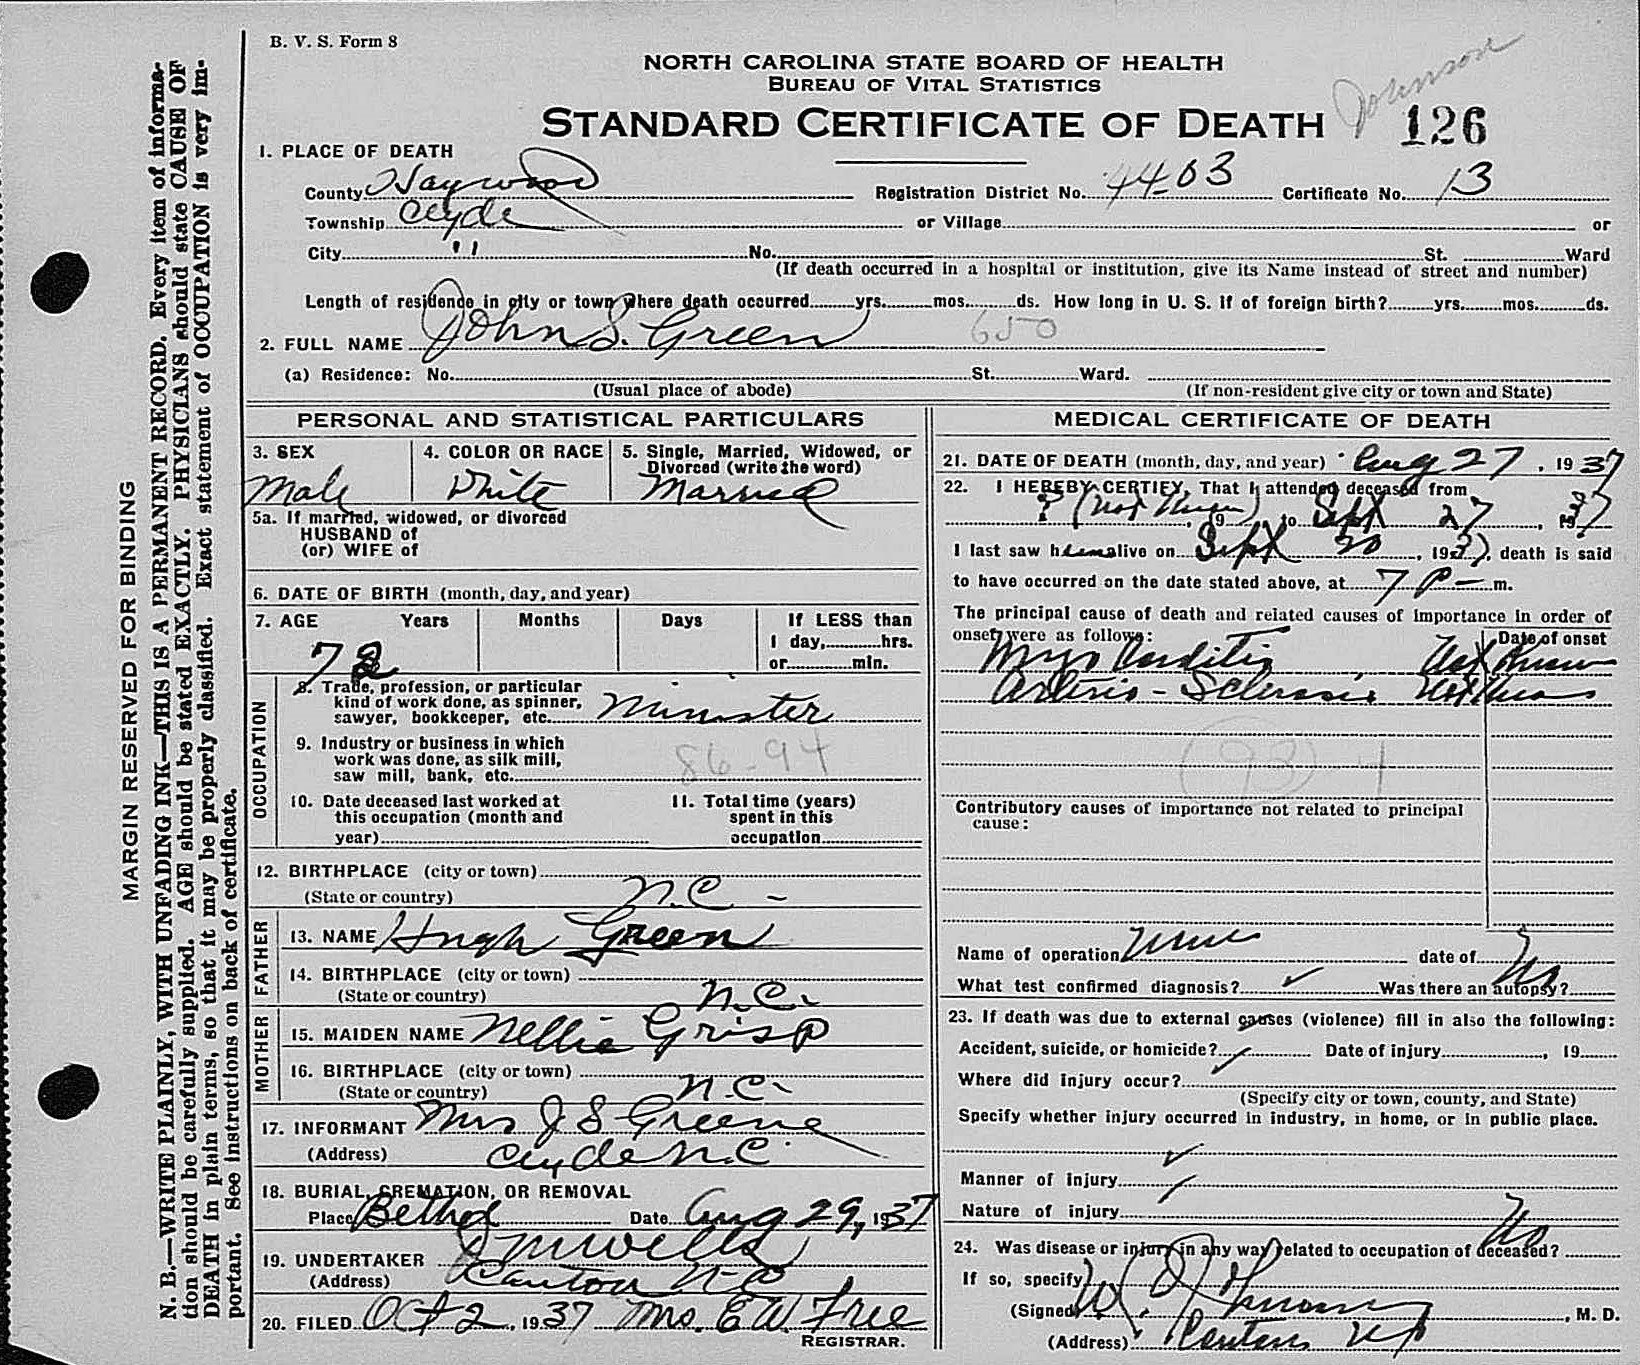 B. V. S. Form 8
NORTH CAROLINA STATE BOARD OF HEALTH
BUREAU OF VITAL STATISTICS
STANDARD CERTIFICATE OF DEATH
Johnson
126
1. PLACE OF DEATH
County Haywood Registration District No. 4403 Certificate No. 13
Township Clyde or Village or
City " No. St. Ward
(If death occurred in a hospital or institution, give its Name instead of street and number)
Length of residence in city or town where death occurred yrs. mos. ds. How long in U. S. if of foreign birth? yrs. mos. ds.
2. FULL NAME John S. Green 650
(a) Residence: No. St. Ward.
(Usual place of abode) (If non-resident give city or town and State)
PERSONAL AND STATISTICAL PARTICULARS
3. SEX 4. COLOR OR RACE 5. Single, Married, Widowed, or
Divorced (write the word)
Male White Married
5a. If married, widowed, or divorced
HUSBAND of
(or) WIFE of
6. DATE OF BIRTH (month, day, and year)
7. AGE Years Months Days If LESS than
1 day, hrs.
or min.
OCCUPATION
8. Trade, profession, or particular
kind of work done, as spinner,
sawyer, bookkeeper, etc. Minister
9. Industry or business in which
work was done, as silk mill,
saw mill, bank, etc. 86-94
10. Date deceased last worked at
this occupation (month and
year)
11. Total time (years)
spent in this
occupation
12. BIRTHPLACE (city or town)
(State or country) N.C. -
FATHER
13. NAME Hugh Green
14. BIRTHPLACE (city or town)
(State or country) N.C.-
MOTHER
15. MAIDEN NAME Nellie Grisp
16. BIRTHPLACE (city or town)
(State or country) N.C.-
17. INFORMANT Mrs J S Greene
(Address) Clyde N.C.
18. BURIAL, CREMATION, OR REMOVAL
Place Bethel Date Aug 29, 1937
19. UNDERTAKER Wells
(Address) Canton N-C
20. FILED Oct 2, 1937 Mrs. E W. Free
REGISTRAR.
MEDICAL CERTIFICATE OF DEATH
21. DATE OF DEATH (month, day, and year) Aug 27, 1937
22. I HEREBY CERTIFY, That I attended deceased from
? (Not Known), 19 to Sept 27, 37
I last saw h alive on Sept 20, 1937, death is said
to have occurred on the date stated above, at 7 P - m.
The principal cause of death and related causes of importance in order of
onset were as follows: Date of onset
Myo Carditis Not Known
Arterio-Sclerosis Not Known
(93) 4
Contributory causes of importance not related to principal
cause:
Name of operation None date of
What test confirmed diagnosis? ✓ Was there an autopsy? No
23. If death was due to external causes (violence) fill in also the following:
Accident, suicide, or homicide? Date of injury , 19
Where did injury occur?
(Specify city or town, county, and State)
Specify whether injury occurred in industry, in home, or in public place.
Manner of injury
Nature of injury
24. Was disease or injury in any way related to occupation of deceased? No
If so, specify
(Signed) , M. D.
(Address) Canton NC
MARGIN RESERVED FOR BINDING
N. B.—WRITE PLAINLY, WITH UNFADING INK—THIS IS A PERMANENT RECORD. Every item of informa-
tion should be carefully supplied. AGE should be stated EXACTLY. PHYSICIANS should state CAUSE OF
DEATH in plain terms, so that it may be properly classified. Exact statement of OCCUPATION is very im-
portant. See instructions on back of certificate.